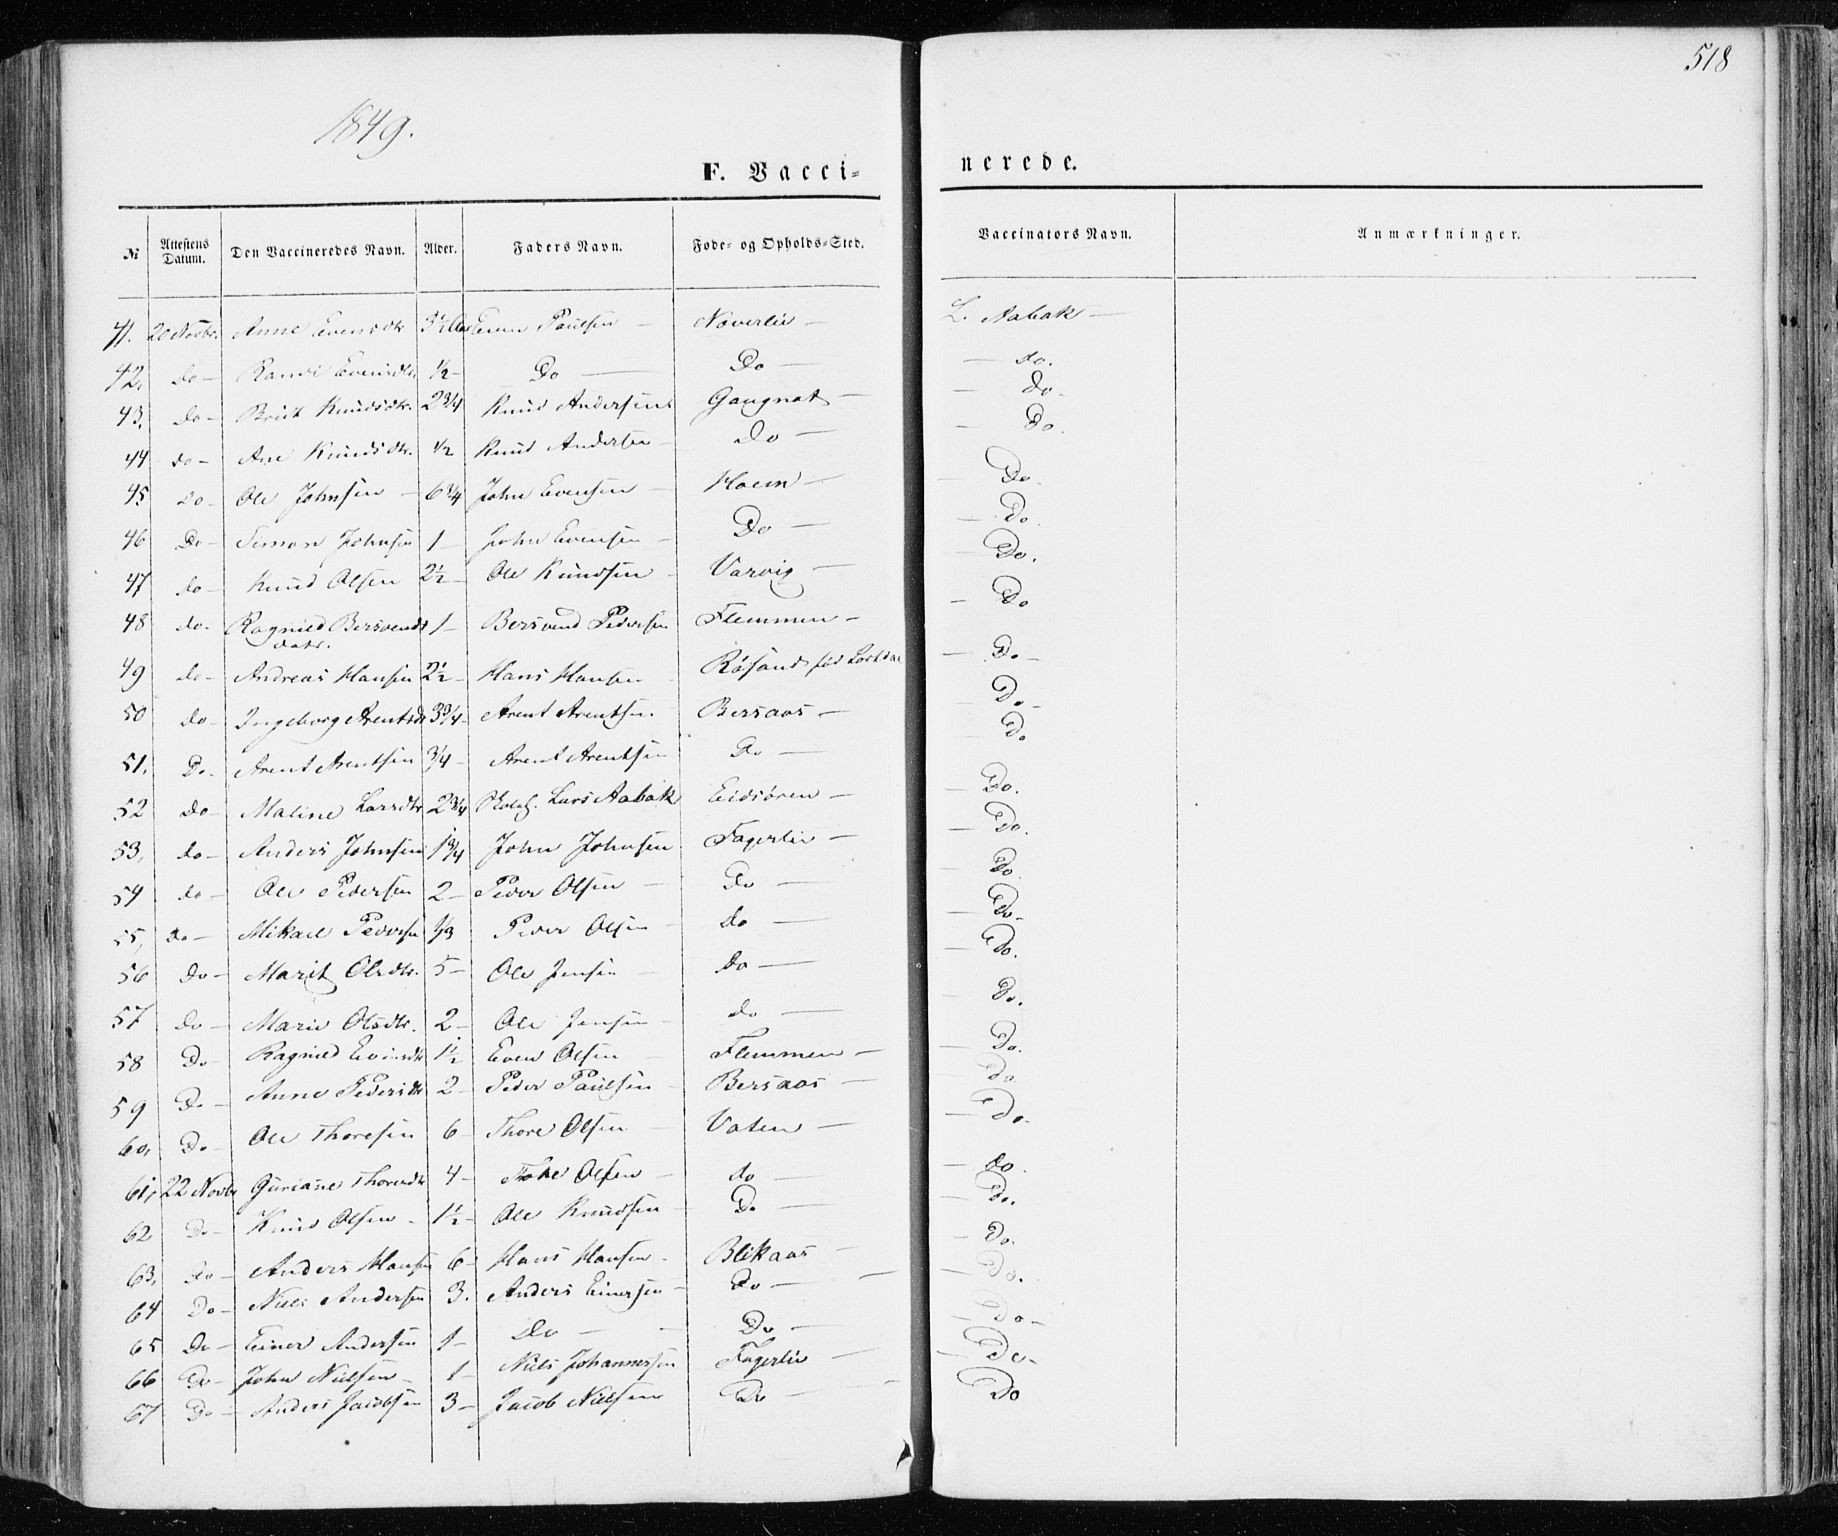 518
1849.
F. Vacci=
nerede.
№ Attestens Datum. Den Vaccineredes Navn. Alder. Faders Navn. Føde- og Opholds-Sted. Vaccinators Navn. Anmærkninger.
41. 20 Novbr. Anne Evensdtr 3½ Aar Even Paulsen — Noverlie — L. Aabak —
42. do — Randi Evensdtr. ½ — Do — Do — — do.
43. do — Brit Knudsdtr. 2¾ Knud Andersen Gaugnat — — do.
44 do — Ane Knudsdtr. ½ Knud Andersen — do — — Do.
45 do — Ole Johnsen — 6¾ John Evensen — Hoem — — Do.
46 Do — Simon Johnsen 1 — John Evensen — Do — — Do.
47 do — Knud Olsen 2½ — Ole Knudsen — Varvig — — Do.
48 do. Ragnild Bersvends 1 — Bersvend Pedersen Flemmen — — Do
datr.
49 do — Andreas Hansen 2½ — Hans Hansen — Røsand — Do —
50 do — Ingeborg Arentsdtr 3¾ — Arent Arentsen — Bersaas — — Do —
51. Do. Arent Arentsen ¾ — Arent Arentsen Do — — Do
52 do — Maline Larsdtr 2¾ Lars Aabak Eidsøren — — Do.
53, do — Anders Johnsen 1¾ John Johnsen Fagerlie — — Do.
54 do — Ole Pedersen 2 — Peder Olsen — Do — — Do.
55, Do — Mikael Pedersen ⅓ Peder Olsen — do — — Do —
56 Do — Marit Olsdtr. 5 — Ole Jensen — do — — Do.
57 do — Marie Olsdtr. 2 — Ole Jensen — do — — Do.
58 Do — Ragnild Evensdtr 1½ Even Olsen — Flemmen — — Do.
59 Do — Anne Pedersdtr 2 — Peder Paulsen — Bersaas — — Do
60, Do — Ole Thoresen 6 — Thore Olsen — Vaten — — Do.
61, 22 Novbr Guriane Thoresdtr 4 — Thore Olsen — do — — do.
62 Do — Knud Olsen — 1½ — Ole Knudsen — Do — — Do.
63, do — Anders Hansen 6 — Hans Hansen — Blikaas — — Do.
64 Do — Niels Andersen 3. Anders Einersen — Do — — Do.
65 Do — Einer Andersen 1 — Do — Do — — Do —
66 Do — John Nielsen — 1 — Niels Johannessen Fagerlie — — Do —
67 Do — Anders Jacobsen 3 — Jacob Nielsen Do — Do